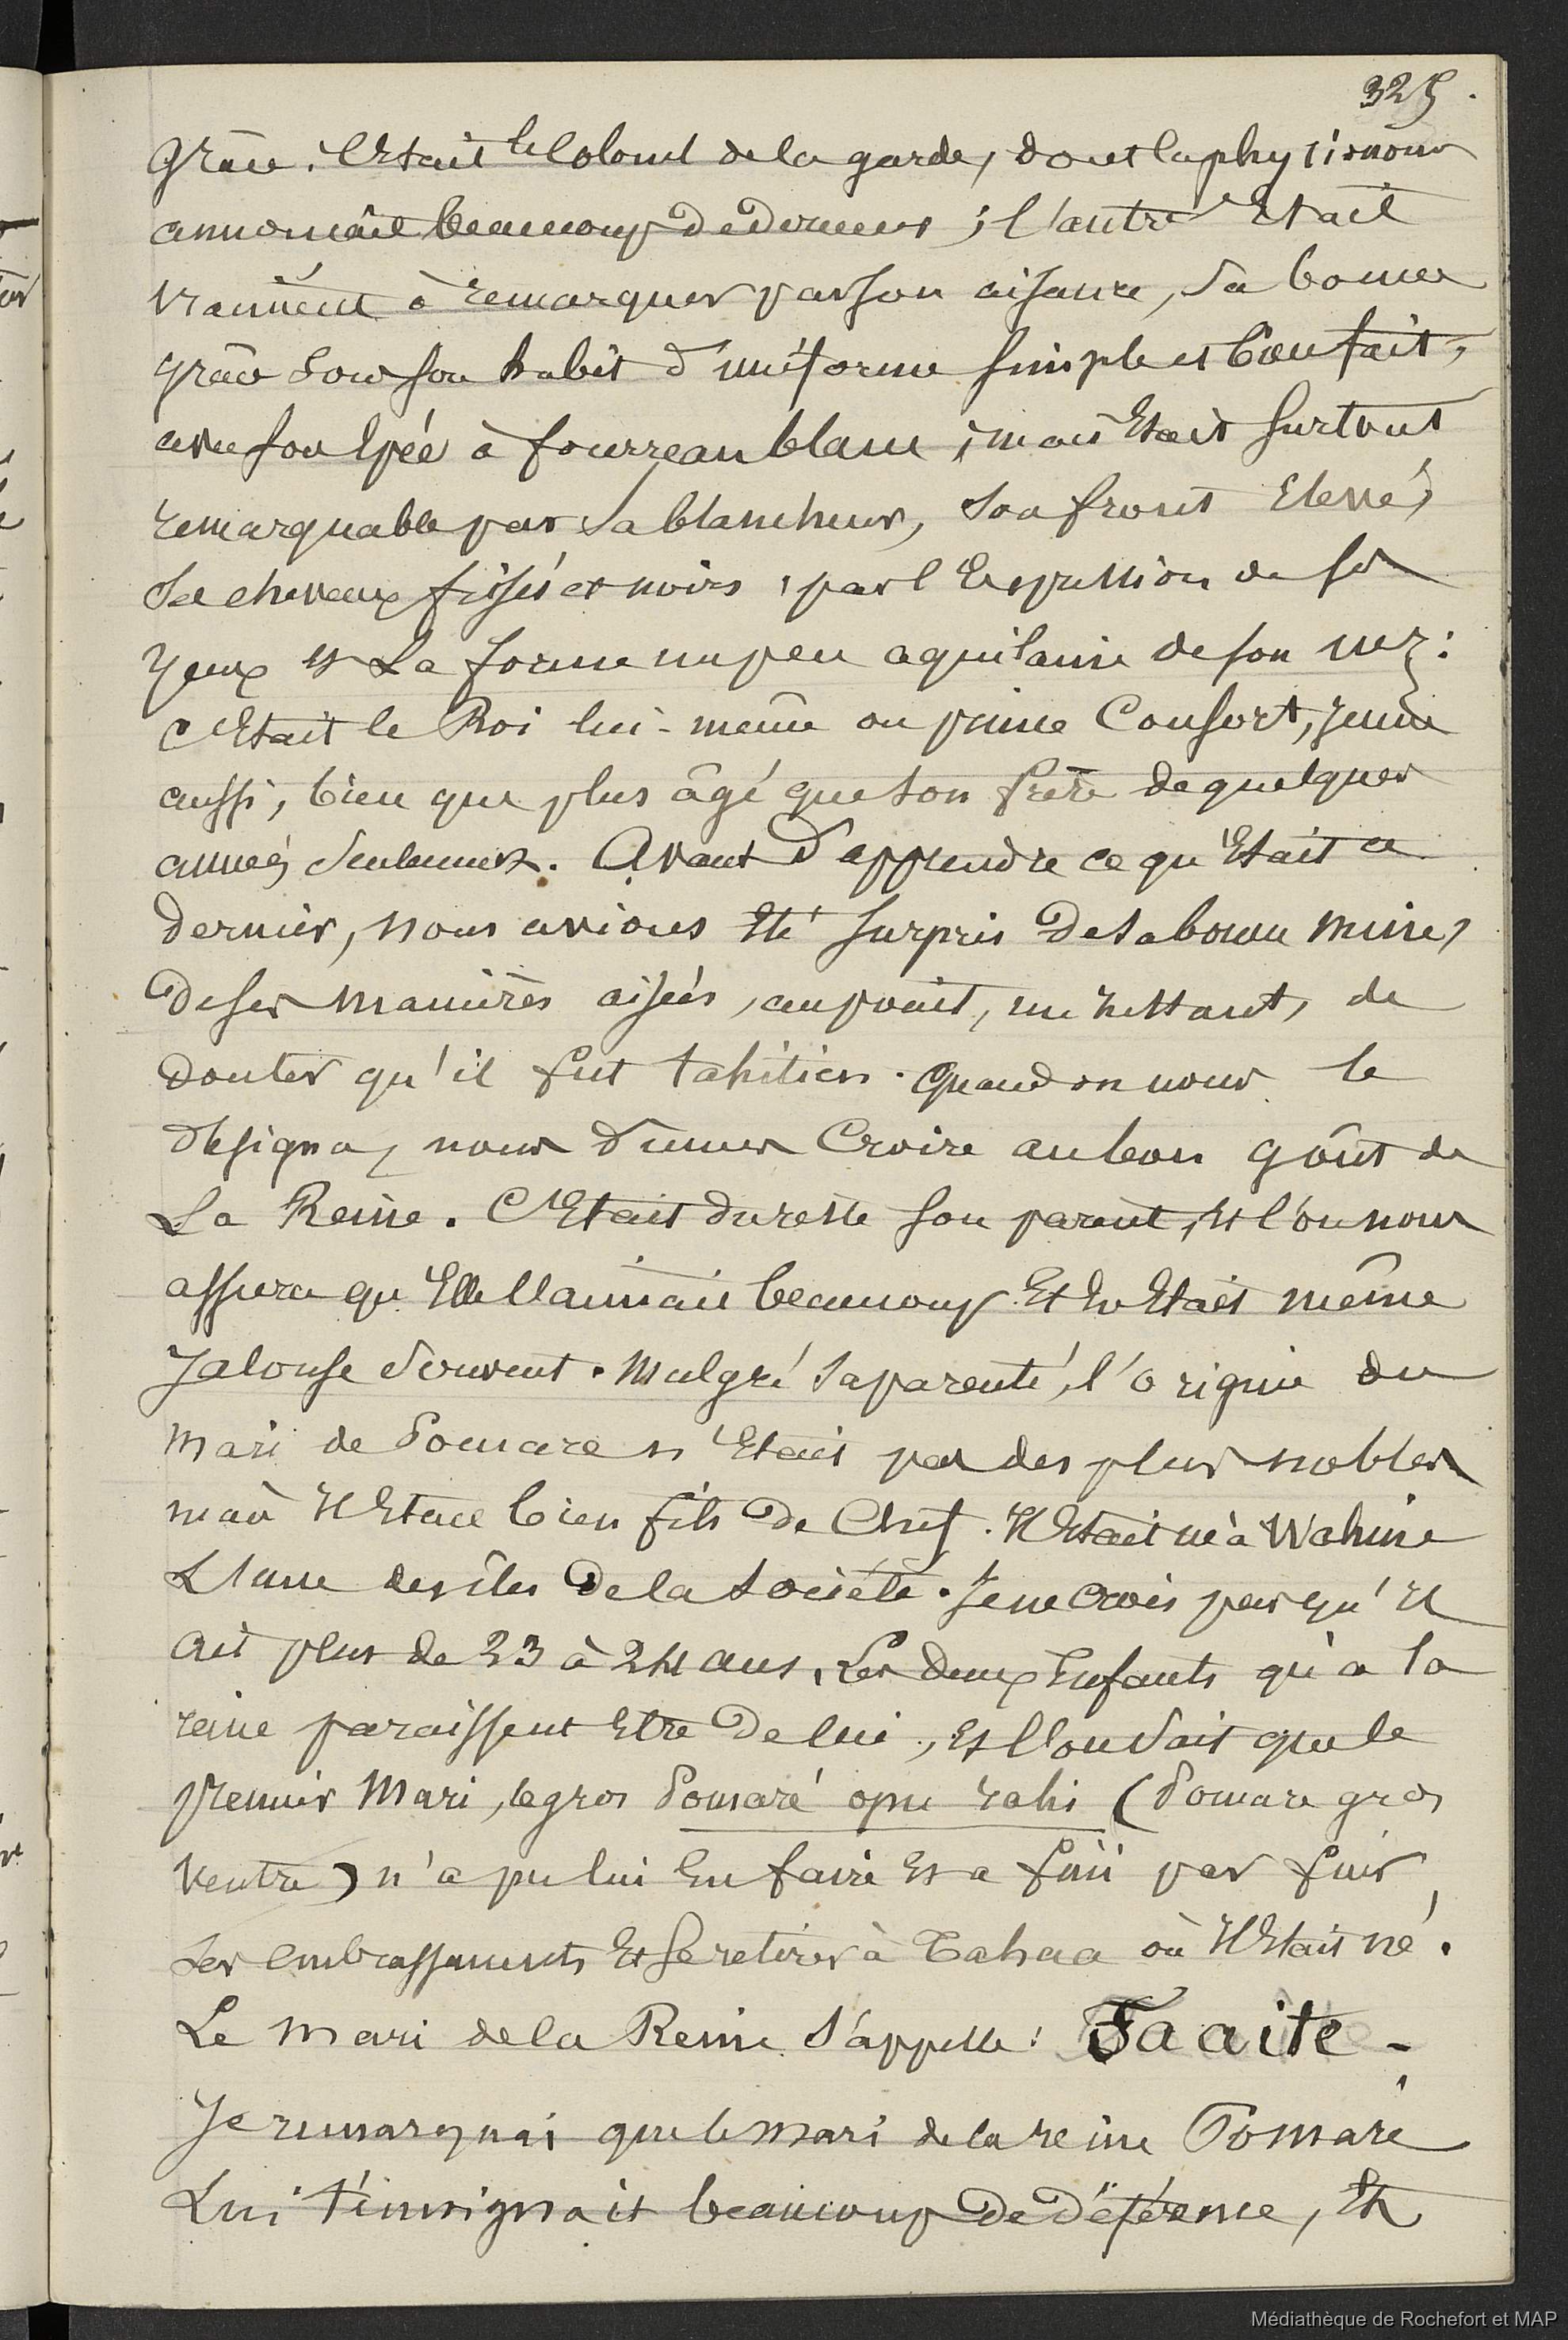 325.
Grâce. C'Etait le Colonel de la garde, dont la physionomie
annonçait beaucoup de douceur ; l'autre Etait
vraiment à remarquer par son aisance, sa bonne
grâce sous son habit d'uniforme simple et bien fait,
avec son Epée à fourreau blanc ; mais Etait surtout
remarquable par sa blancheur, son front Elevé,
ses cheveux frisés et noirs, par l'Expression de ses
yeux et La forme un peu aquilaine de son nez :
c'Etait le Roi lui-même ou prince Consort, jeune
aussi, bien que plus âgé que son frère de quelques
années seulement. Avant d'apprendre ce qu'Etait ce
dernier, nous avions Eté surpris de sa bonne mine,
de ses manières aisées, au point, un instant, de
douter qu'il fut tahitien. Quand on nous le
désigna, nous dûmes Croire au bon goût de
La Reine. C'Etait du reste son parent, et l'on nous
assura qu'Elle l'aimait beaucoup Et En Etait même
Jalouse souvent. Malgré sa parenté, l'origine du
mari de Pomare n'Etait pas des plus nobles
mais Il Etait bien fils de Chef. Il Etait né à Wahine
L'une des îles de la Société. Je ne Crois pas qu'Il
ait plus de 23 à 24 ans. Les deux Enfants qu'a la
reine paraissent Etre de lui, et l'on sait que le
premier Mari, le gros Pomaré opu rahi (Pomare gros
ventre) n'a pu lui En faire Et a fini par fuir
ses embrassements Et se retirer à Tahaa où Il Etait né.
Le mari de la Reine s'appelle : Faaite -
Je remarquai que le mari de la reine Pomaré
Lui témoignait beaucoup de déférence, Et
Médiathèque de Rochefort et MAP